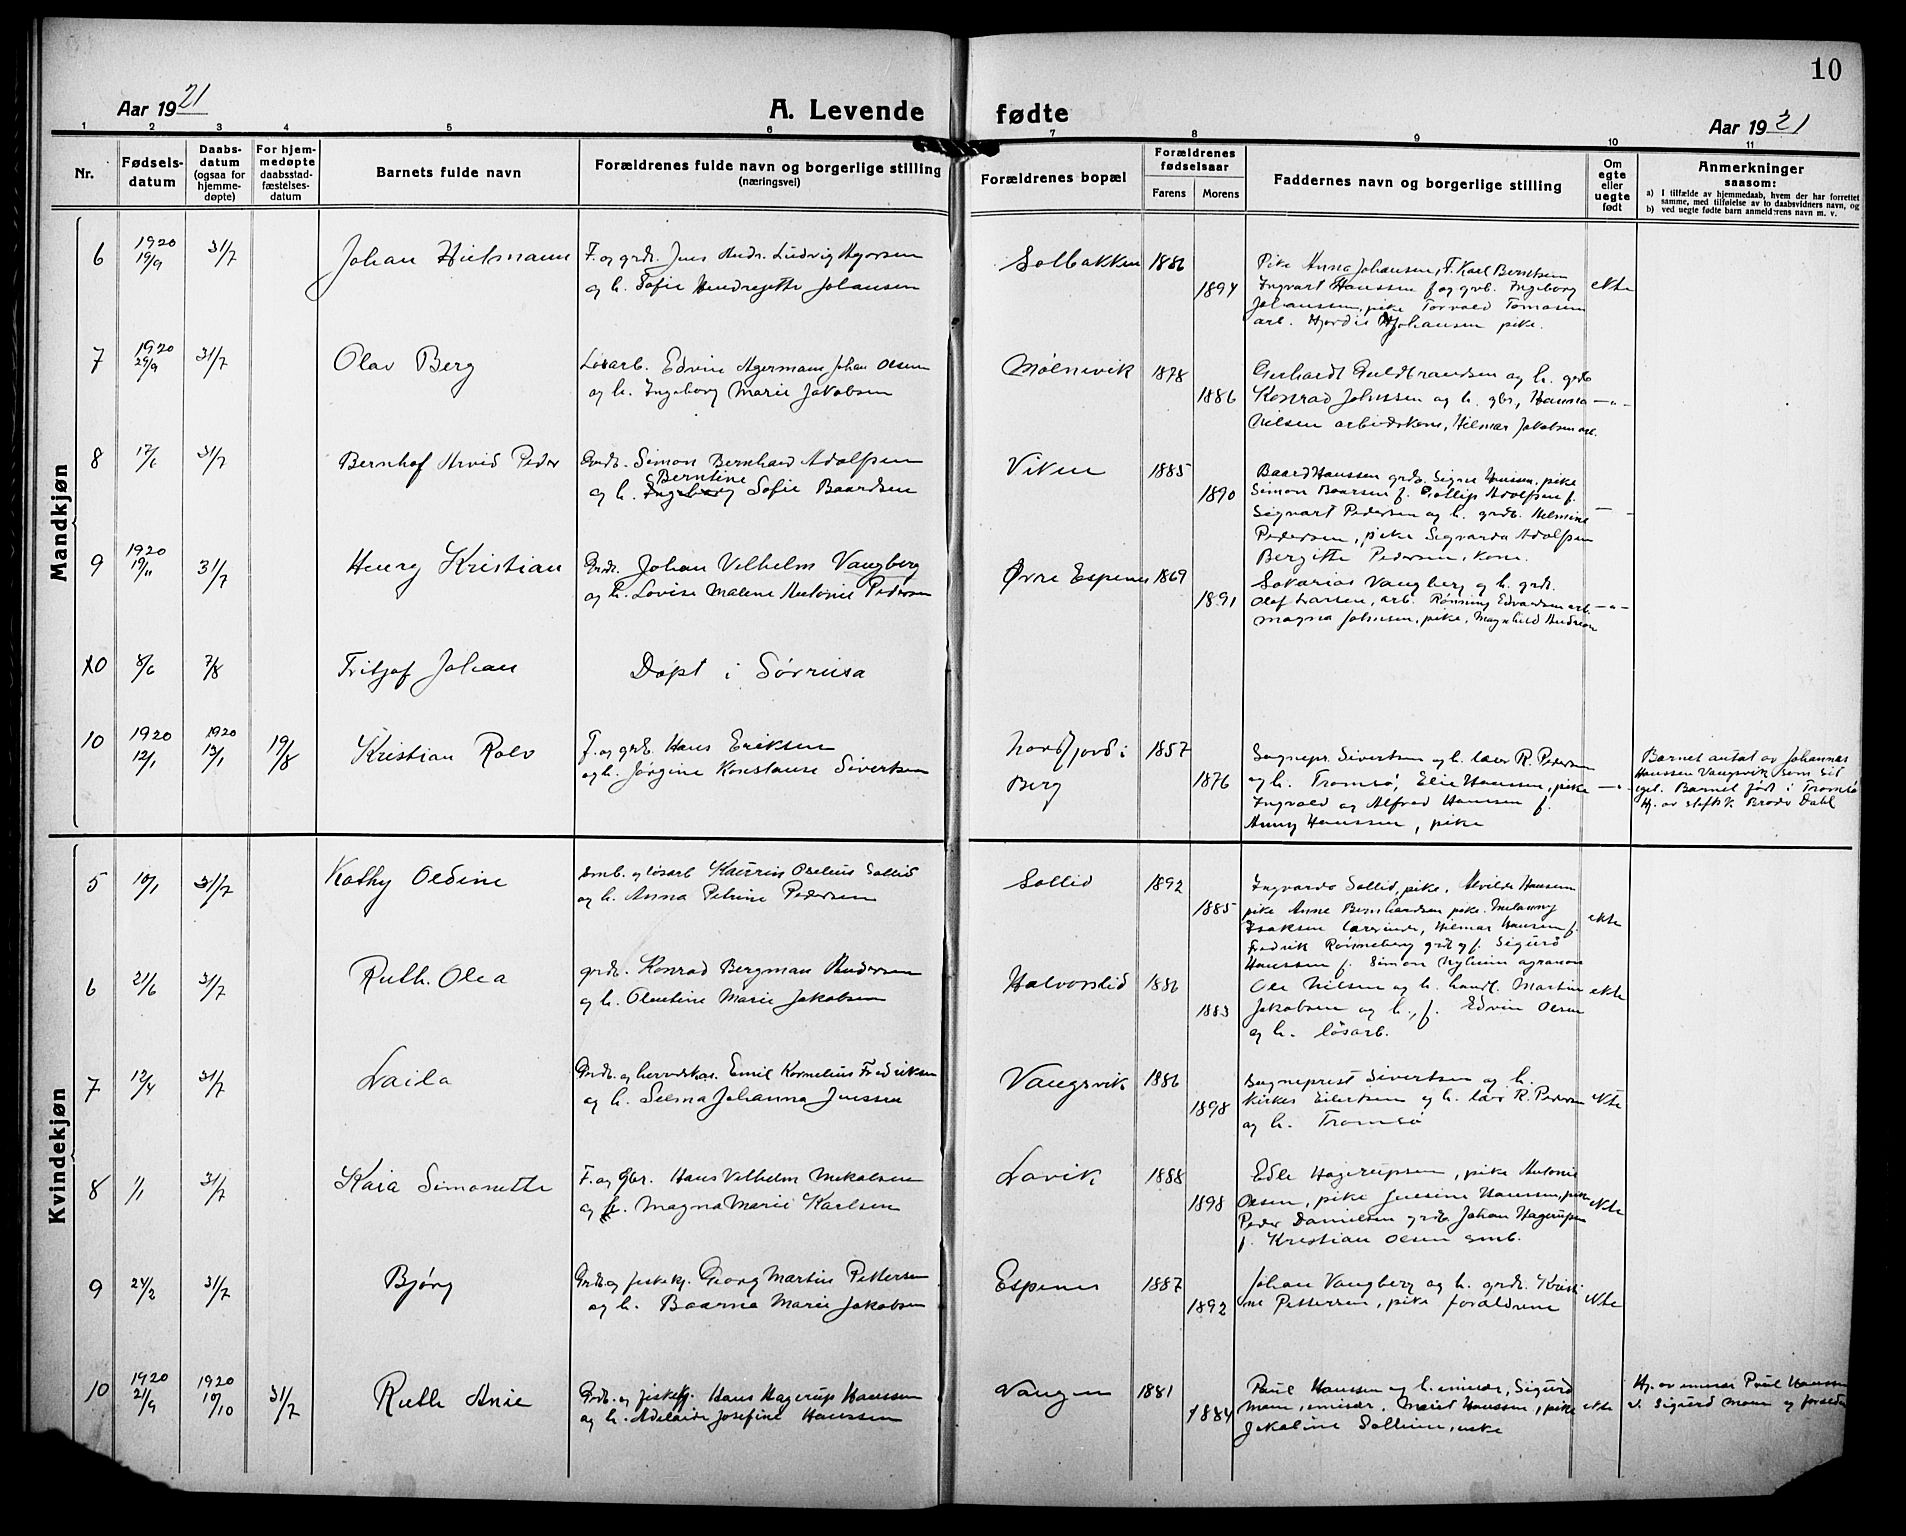 10
Aar 1921
A. Levende fødte
Aar 1921
1 2 3 4 5 6 7 8 9 10 11
Nr.
Fødsels-
datum
Daabs-
datum
(ogsaa for
hjemme-
døpte)
For hjem-
medøpte
daabsstad-
fæstelses-
datum
Barnets fulde navn
Forældrenes fulde navn og borgerlige stilling
(næringsvei)
Forældrenes bopæl
Forældrenes
fødselsaar
Farens Morens
Faddernes navn og borgerlige stilling
Om
egte
eller
uegte
født
Anmerkninger
saasom:
a) I tilfælde av hjemmedaab, hvem der har forrettet
samme, med tilføielse av to daabsvidners navn, og
b) ved uegte fødte barn anmelderens navn m. v.
Mandkjøn
6 1920 19/9 31/7 Johan Hielmann
F. og grdb. Jens Andr. Ludvig
og h. Sofie Johansen
Solbakken 1886 1894
Pike Anna Johansen, F. Karl Berntsen
Ingvart Hanssen f. og grb. Ingeborg
Johanssen, pike Torvald Tomasen
arb. Hjordis Johansen pike.
ekte
7 1920 29/9 31/7 Olav Berg
Løsarb. Edvin Agerman Johan Olsen
og h. Ingeborg Marie Jakobsen
Mølnivik 1878 1886
Gerhardt Guldbrandsen og h. grdb
Konrad Johnsen og h. gbr, Hanna
Nilsen arbeidskone, Hilmar Jakobsen arb.
—"—
8 17/6 31/7 Bernhof Arvid Peder
Grdb. Simon Bernhard Adolfsen
Berntine
og h. Ingeborg Sofie Baardsen
Viken 1885 1890
Baard Hanssen grdb. Signe Hanssen, pike
Simon Baarsen f. Adolfsen f.
Sigvart Pedersen og h. grdb. Helmine
Pedersen, pike Sigvarda Adolfsen
Bergitte Pedersen, kone.
— -
9 1920 19/11 31/7 Henry Kristian
Grdb. Johan Vilhelm Vangberg
og h. Lovise Malene Antonie Pedersen
Øvre Espenes 1869 1891
Sakarias Vangberg og h. grdb.
Olaf Larsen, arb. Rønning Edvardsen arb.
Magna Johnsen, pike, Magnhild
—"—
10 8/6 7/8 Fritjof Johan
Døpt i Sørreisa
10 1920 12/1 1920 13/1 19/8 Kristian Rolv
F. og grdb. Hans Eriksen
og h. Jørgine Konstanse Sivertsen
Nordfjord i
Berg
1857 1876
Sognepr. Sivertsen og h. lærer R. Pedersen
og h. Tromsø, Elie Hanssen, pike
Ingvald og Alfred Hansen f.
Anny Hanssen, pike
—"—
Barnet antat av Johannes
Hanssen Vangsvik som sit
eget. Barnet født i Tromsø
Hj. av stiftsk. Brodv Dahl
Kvindekjøn
5 10/1 31/7 Kathy Oldine
Smb. og løsarb Kaurin Oselius Sollid
og h. Anna Petrine Pedersen
Sollid 1892 1885
Ingvarda Sollid, pike, Alvilde Hansen
pike Anne Bernhardsen pike. Melanny
Isaksen lærerinde, Hilmar Hansen f.
Fredrik Rønneberg grdb og f. Sigurd
Hanssen f. Simon Nyheim agronom
ekte
6 21/6 31/7 Ruth Olea
grdb. Konrad Bergman Andersen
og h. Olentine Marie Jakobsen
Halvorslid 1886 1883
Ole Nilsen og h. handl. Martin
Jakobsen og h., f. Edvin Olsen
og h. løsarb.
ekte
7 12/4 31/7 Laila
Grdb. og herredskas. Emil Kornelius Fredriksen
og h. Selma Johanna Jenssen
Vangsvik 1886 1898
Sogneprest Sivertsen og h.
Kirkes. Eilertsen og h. lærer R. Pedersen
og h. Tromsø
ekte
8 1/1 31/7 Kaia Simonette
F. og Gbr. Hans Vilhelm Mikalsen
og h. Magna Marie Karlsen
Lavik 1888 1898
Edle Hagerupsen, pike Antonie
Olsen, pike Jensine Hanssen, pike
Peder Danielsen grdb Johan Hagerupsen
f. Kristian Olsen smb.
ekte
9 24/2 31/7 Bjørg
Grdb. og fiskekj. Georg Martin Pettersen
og h. Baarna Marie Jakobsen
Espenes 1887 1892
Johan Vangberg og h. grdb. Kristi
ne Pettersen, pike forældrene
ekte
10 1920 21/9 1920 10/10 31/7 Ruth Anie
Grdb. og fiskekj. Hans Hagerup Hanssen
og h. Adelaide Josefine Hanssen
Vangen 1881 1884
Paul Hanssen og h. emisær, Sigurd
Moen, emisær, Marit Hanssen, pike
Jakobine Sollien, enke
ekte
Hj. av emisær Paul Hanssen
v. Sigurd Moen og foreldre